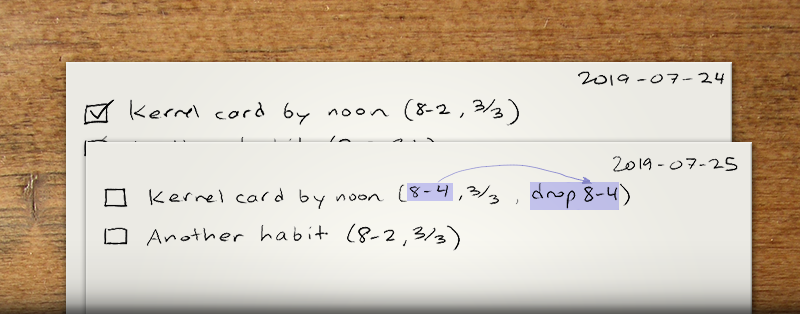 2019-07-24
Kernel card by noon (8-2, 3/3)
2019-07-25
Kernel card by noon (8-4, 3/3, drop 8-4)
Another habit (8-2, 3/3)